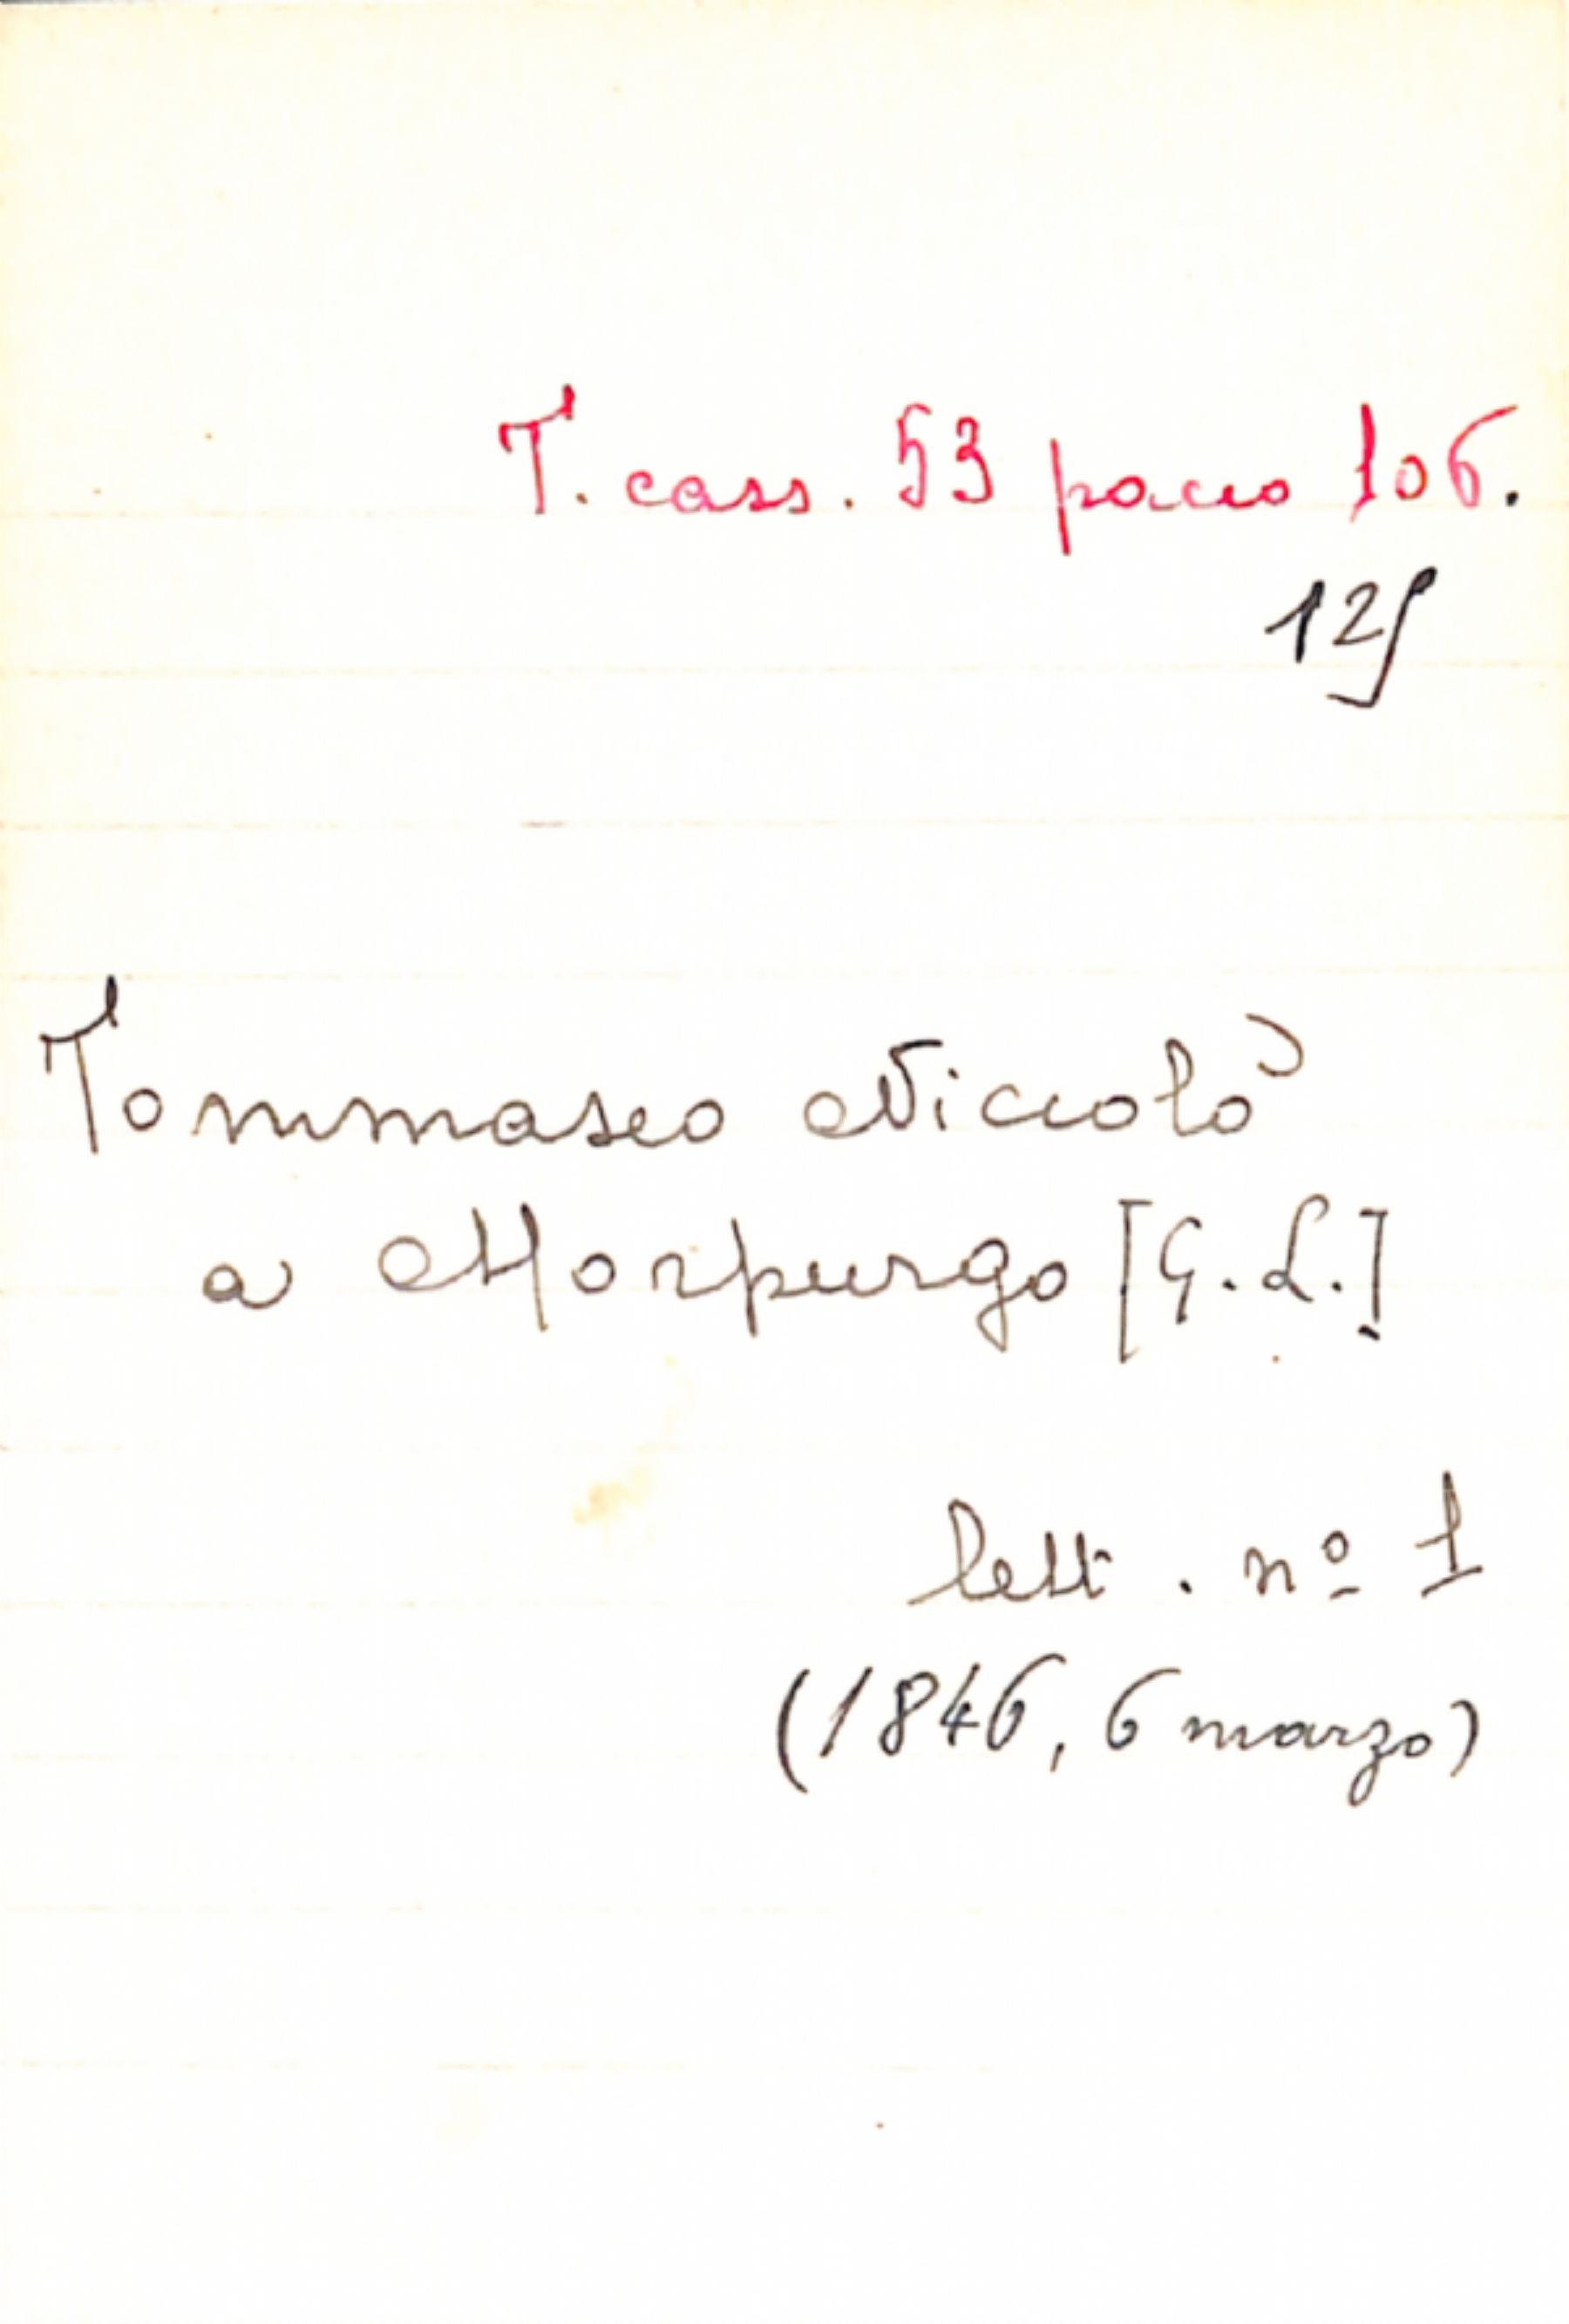 T. cass. 53 pacco 106.
125
Tommaseo Niccolò
a Morpurgo [G. L.]
lett. nº 1
(1846, 6 marzo)